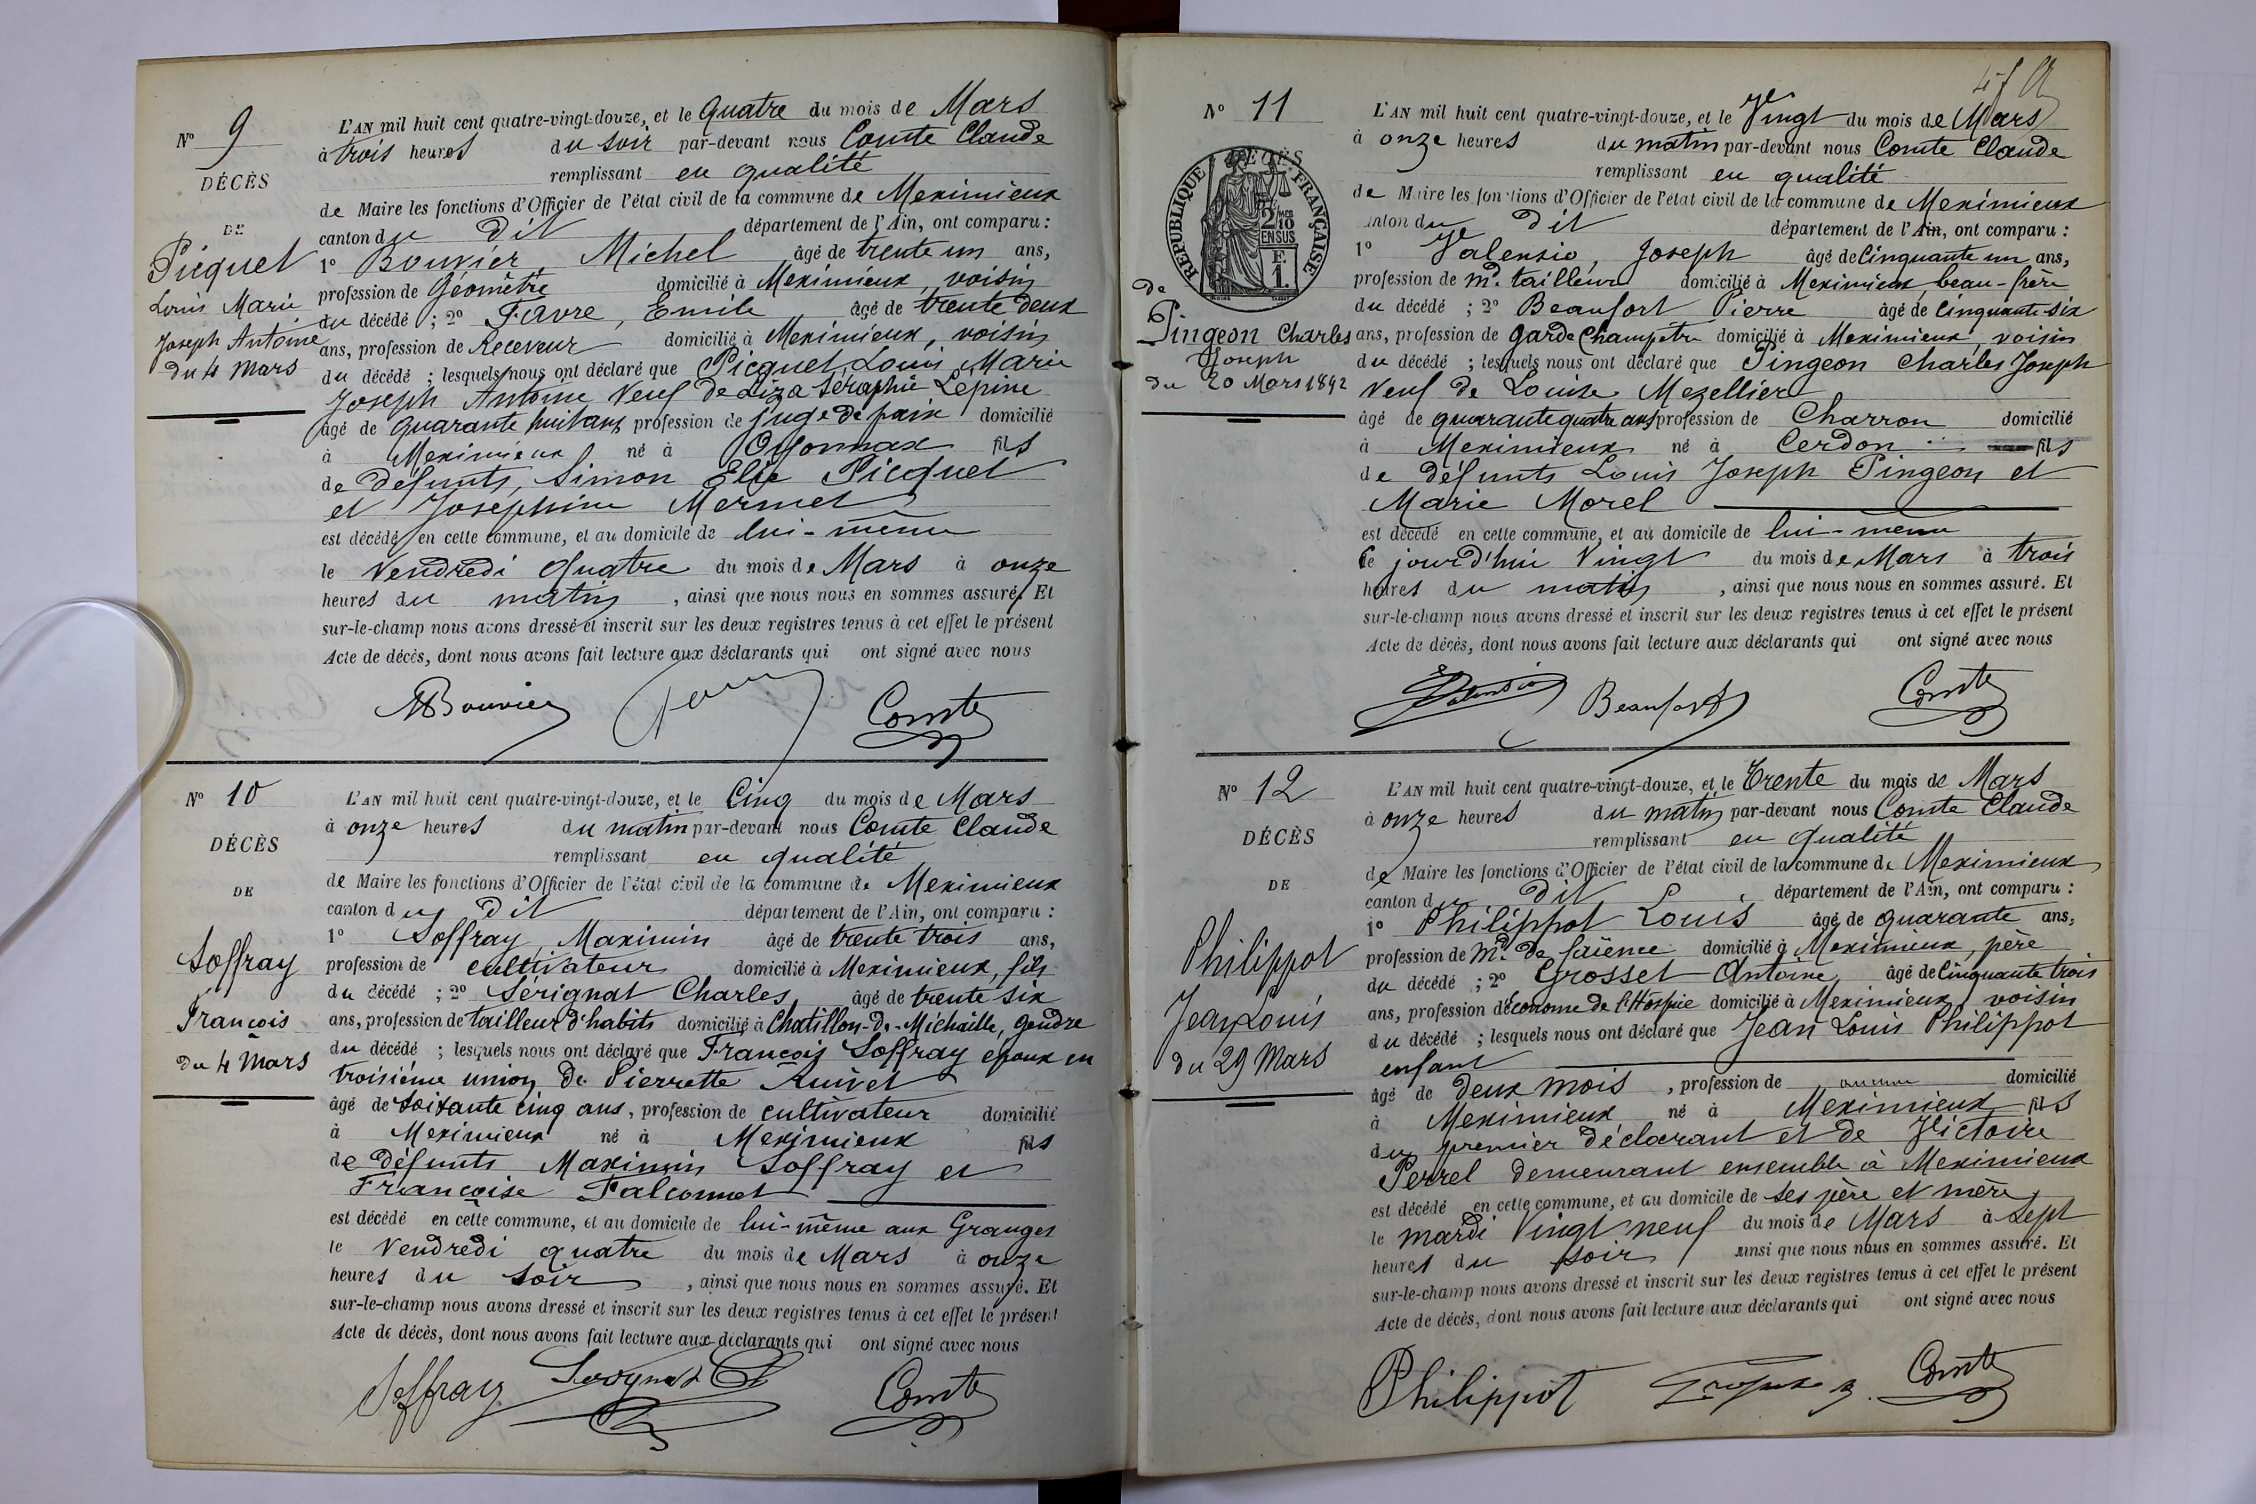 N° 9
DÉCÈS
DE
Picquet
Louis Marie
Joseph Antoine
du 4 Mars
L'AN mil huit cent quatre-vingt-douze, et le Quatre du mois de Mars
à trois heures du soir par-devant nous Comte Claude
remplissant en qualité
de Maire les fonctions d'Officier de l'état civil de la commune de Meximieux
canton du Dit département de l'Ain, ont comparu :
1° Bouvier Michel âgé de trente un ans,
profession de Géomètre domicilié à Meximieux, voisin
du décédé ; 2° Favre, Emile âgé de trente deux
ans, profession de Receveur domicilié à Meximieux, voisin
du décédé ; lesquels nous ont déclaré que Picquet, Louis Marie
Joseph Antoine Veuf de Liza Séraphie Lépine
âgé de quarante huit ans profession de juge de paix domicilié
à Meximieux né à Oyonnax fils
de défunts, Simon Elie Picquet
et Josephine Mermet
est décédé en cette commune, et au domicile de lui-même
le Vendredi Quatre du mois de Mars à onze
heures du matin, ainsi que nous nous en sommes assuré. Et
sur-le-champ nous avons dressé et inscrit sur les deux registres tenus à cet effet le présent
Acte de décès, dont nous avons fait lecture aux déclarants qui ont signé avec nous
MBouvier Comte
N° 10
DÉCÈS
DE
Soffray
François
du 4 Mars
L'AN mil huit cent quatre-vingt-douze, et le Cinq du mois de Mars
à onze heures du matin par-devant nous Comte Claude
remplissant en qualité
de Maire les fonctions d'Officier de l'état civil de la commune de Meximieux
canton du Dit département de l'Ain, ont comparu :
1° Soffray, Maximin âgé de trente trois ans,
profession de cultivateur domicilié à Meximieux, fils
du décédé ; 2° Sérignat Charles âgé de trente six
ans, profession de tailleur d'habits domicilié à Chatillon-de-Michaille, gendre
du décédé ; lesquels nous ont déclaré que François Soffray époux en
troisième union de Pierrette Ruivet
âgé de soixante cinq ans, profession de cultivateur domicilié
à Meximieux né à Meximieux fils
de défunts Maximin Soffray et
Françoise Falconnet
est décédé en cette commune, et au domicile de lui-même aux Granges
le Vendredi quatre du mois de Mars à onze
heures du soir, ainsi que nous nous en sommes assuré. Et
sur-le-champ nous avons dressé et inscrit sur les deux registres tenus à cet effet le présent
Acte de décès, dont nous avons fait lecture aux déclarants qui ont signé avec nous
Soffray Serignat C Comte
N° 11
DÉCÈS
RÉPUBLIQUE FRANÇAISE
2/10 EN SUS
F. 1.
de
Pingeon Charles
Joseph
du 20 Mars 1892
L'AN mil huit cent quatre-vingt-douze, et le Vingt du mois de Mars
à onze heures du matin par-devant nous Comte Claude
remplissant en qualité
de Maire les fonctions d'Officier de l'état civil de la commune de Meximieux
canton du Dit département de l'Ain, ont comparu :
1° Valensio, Joseph âgé de Cinquante un ans,
profession de Md. tailleur domicilié à Meximieux, beau-frère
du décédé ; 2° Beaufort Pierre âgé de Cinquante-six
ans, profession de Garde Champetre domicilié à Meximieux, voisin
du décédé ; lesquels nous ont déclaré que Pingeon Charles Joseph
Veuf de Louise Mezellier
âgé de quarante quatre ans profession de Charron domicilié
à Meximieux né à Cerdon fils
de défunts Louis Joseph Pingeon et
Marie Morel
est décédé en cette commune, et au domicile de lui-même
Ce jourd'hui Vingt du mois de Mars à trois
heures du matin, ainsi que nous nous en sommes assuré. Et
sur-le-champ nous avons dressé et inscrit sur les deux registres tenus à cet effet le présent
Acte de décès, dont nous avons fait lecture aux déclarants qui ont signé avec nous
Beaufort Comte
N° 12
DÉCÈS
DE
Philippot
Jean Louis
du 29 Mars
L'AN mil huit cent quatre-vingt-douze, et le Trente du mois de Mars
à onze heures du matin par-devant nous Comte Claude
remplissant en qualité
de Maire les fonctions d'Officier de l'état civil de la commune de Meximieux
canton du Dit département de l'Ain, ont comparu :
1° Philippot Louis âgé de quarante ans,
profession de Md. de faïence domicilié à Meximieux, père
du décédé ; 2° Grosset Antoine âgé de Cinquante trois
ans, profession d'Econome de l'Hospice domicilié à Meximieux, voisin
du décédé ; lesquels nous ont déclaré que Jean Louis Philippot
enfant
âgé de deux mois, profession de aucune domicilié
à Meximieux né à Meximieux fils
du premier déclarant et de Victoire
Perrel demeurant ensemble à Meximieux
est décédé en cette commune, et au domicile de ses père et mère
le mardi Vingt neuf du mois de Mars à Sept
heures du soir ainsi que nous nous en sommes assuré. Et
sur-le-champ nous avons dressé et inscrit sur les deux registres tenus à cet effet le présent
Acte de décès, dont nous avons fait lecture aux déclarants qui ont signé avec nous
Philippot Comte